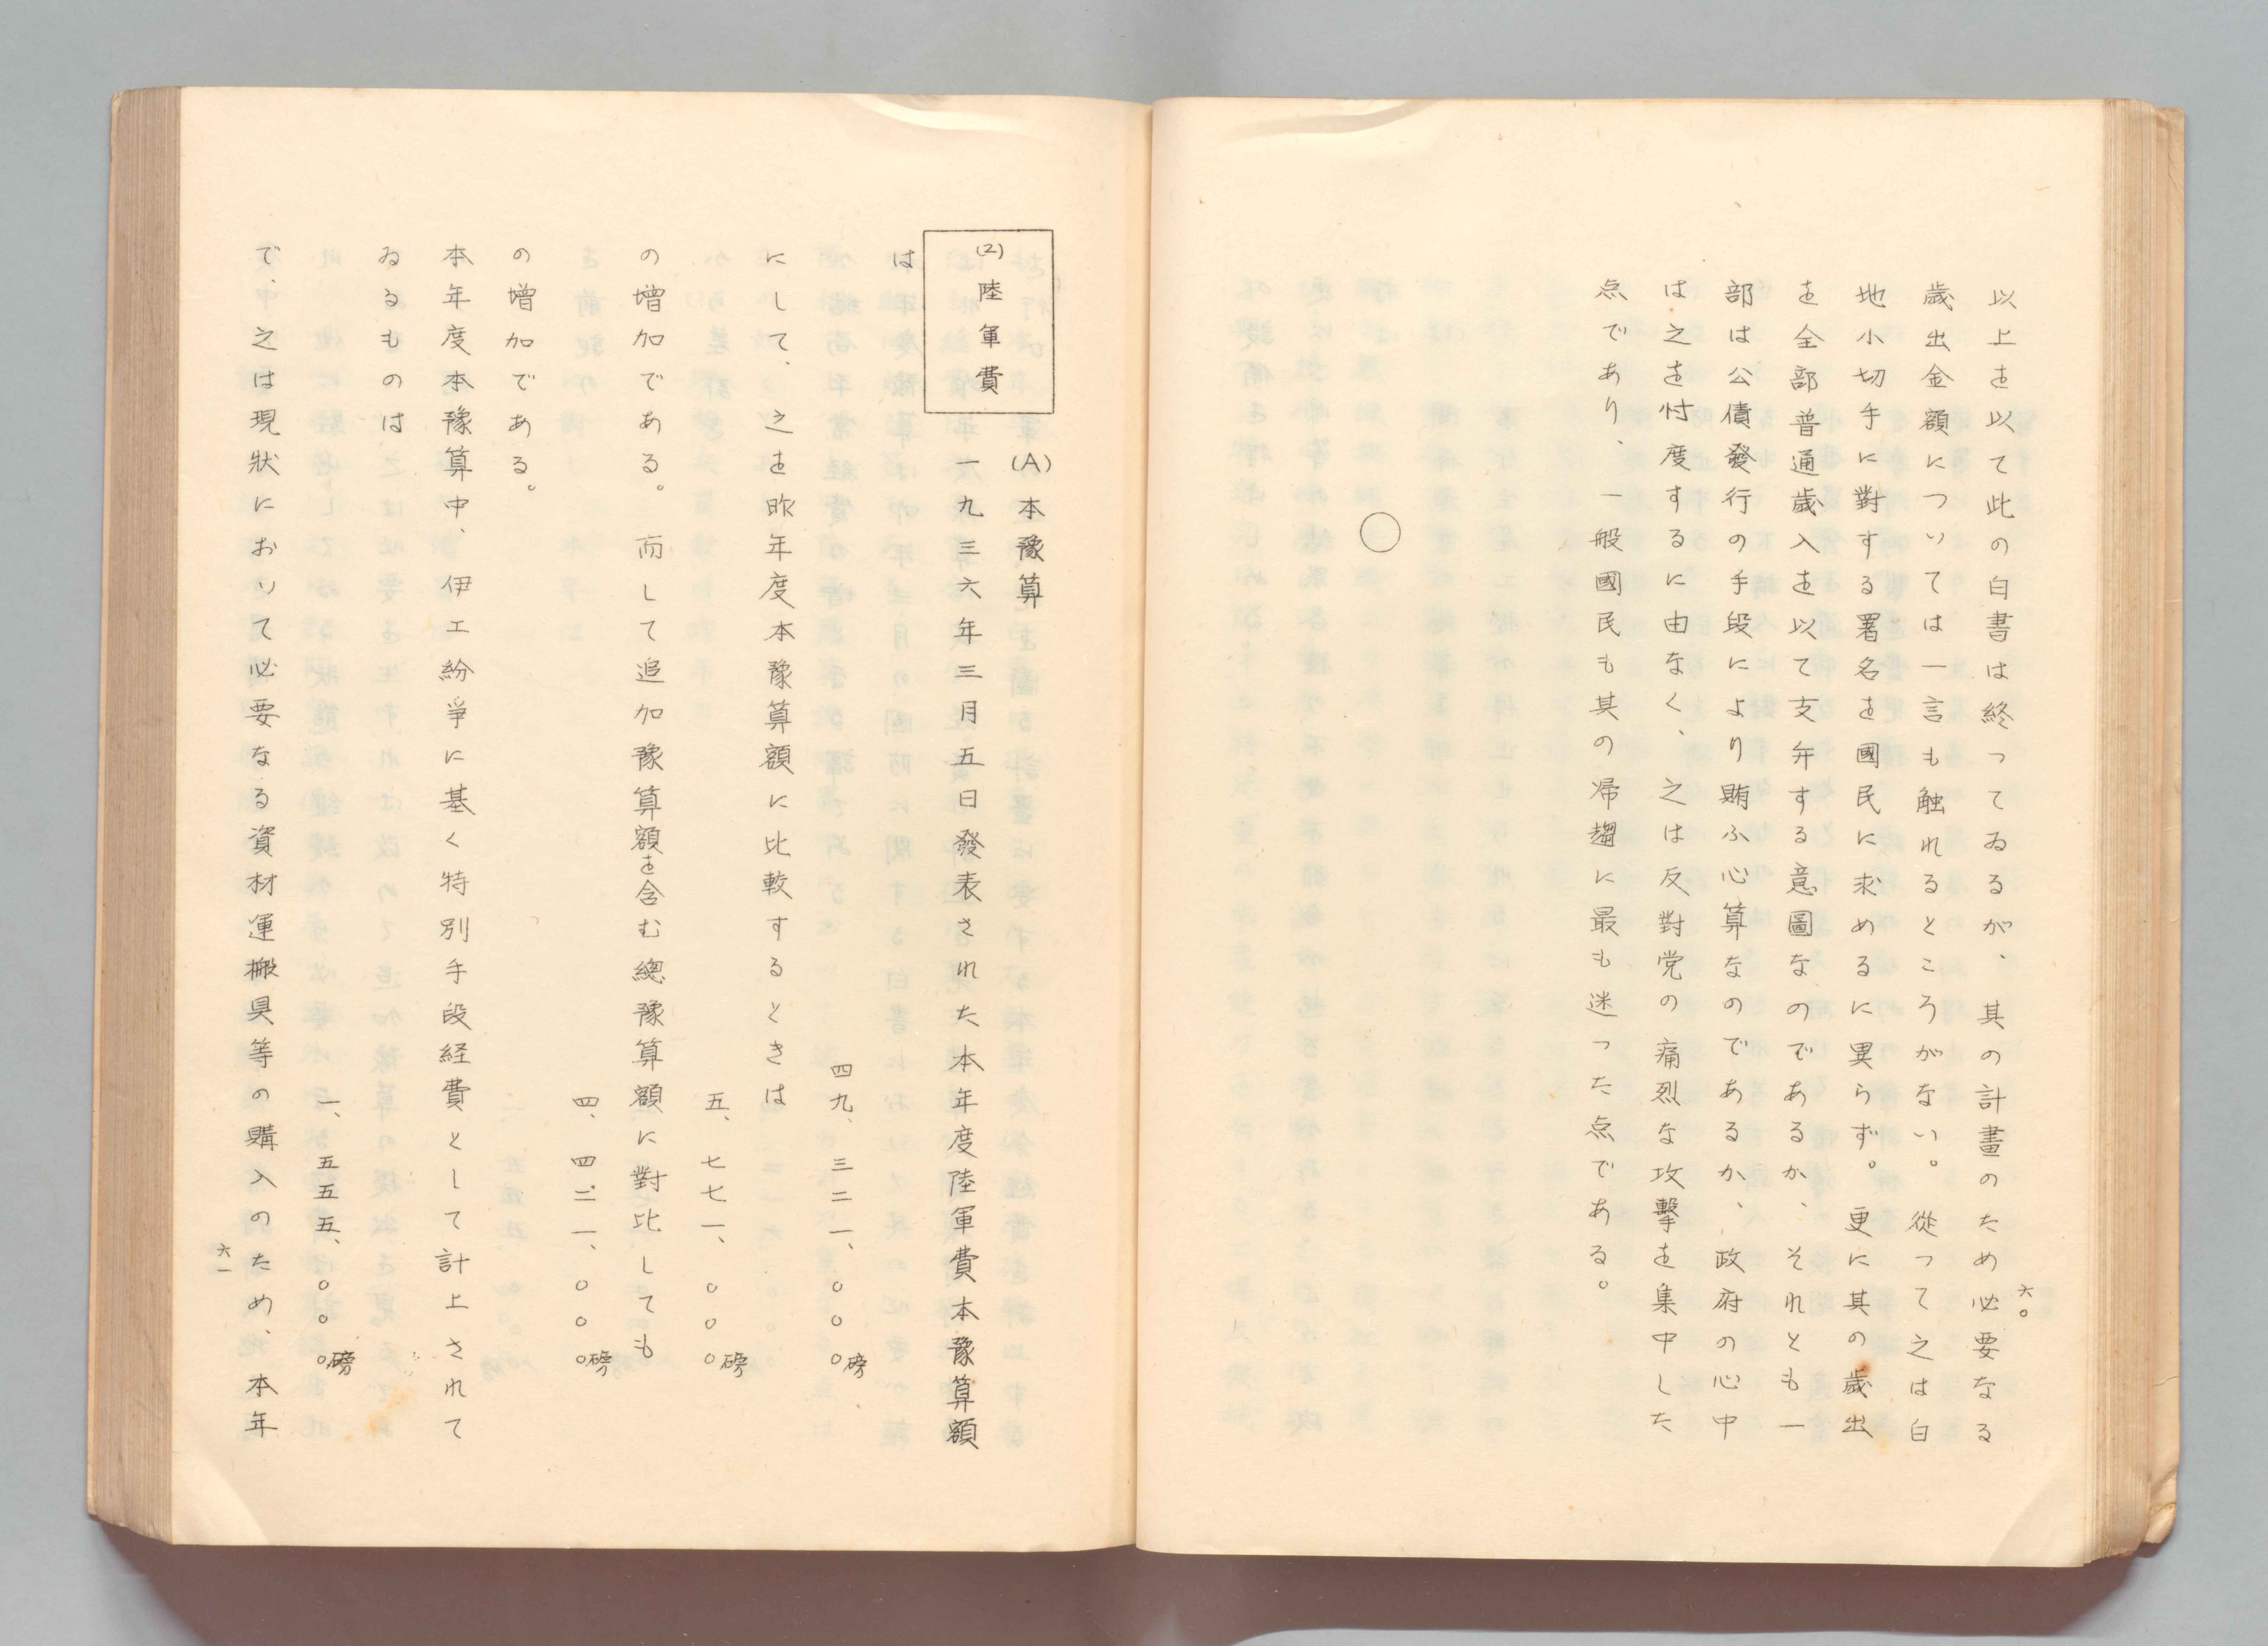 以上を以て此の白書は終ってゐるが、其の計畫のため必要なる
歲出金額については一言も触れるところがない。從って之は白
地小切手に對する署名を國民に求めるに異らず。更に其の歲出
を全部普通歲入を以て支弁する意圖なのであるか、それとも一
部は公債發行の手段により賄ふ心算なのであるか、政府の心中
は之を忖度するに由なく、之は反對党の痛烈な攻擊を集中した
点であり、一般國民も其の帰趨に最も迷った点である。
○
六〇
(2)陸軍費
(A)本豫算
一九三六年三月五日發表された本年度陸軍費本豫算額
は
四九、三二一、〇〇〇磅
にして、之を昨年度本豫算額に比較するときは
五、七七一、〇〇〇磅
の增加である。而して追加豫算額を含む總豫算額に對比しても
四、四二一、〇〇〇磅
の增加である。
本年度本豫算中、伊エ紛爭に基く特別手段経費として計上されて
ゐるものは
一、五五五、〇〇〇磅
で、之は現狀において必要なる資材運搬具等の購入のため、本年
六一